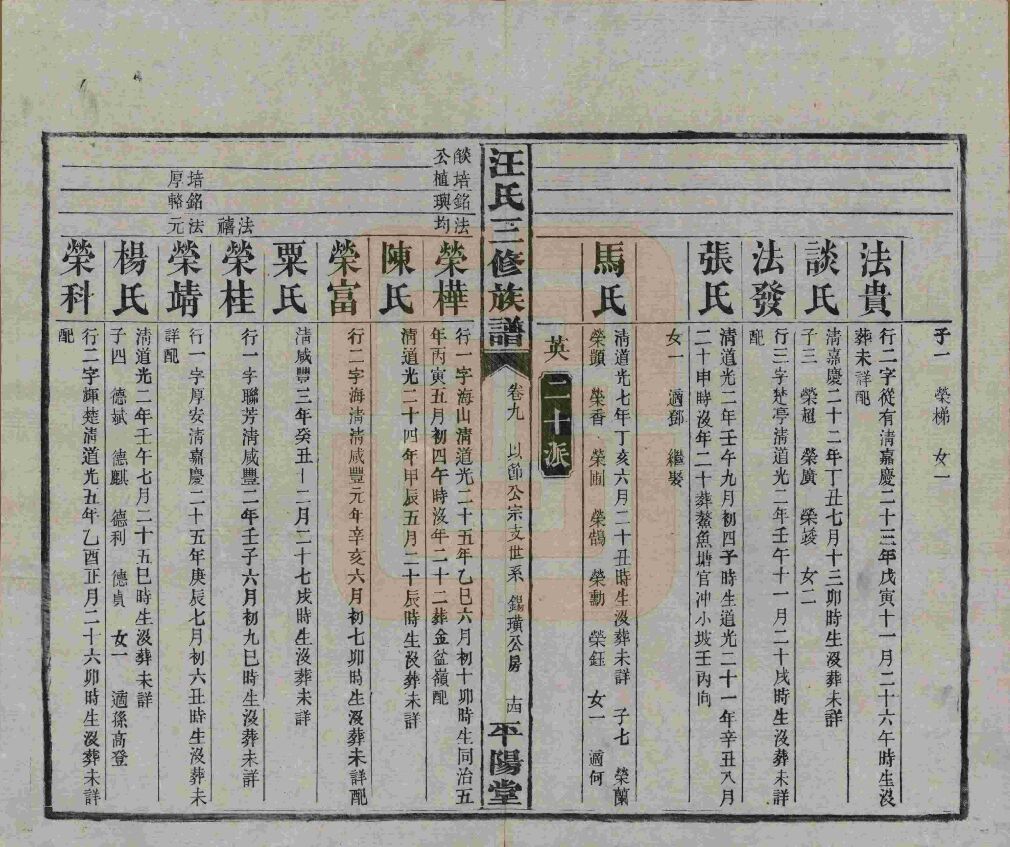 子一 榮梯 女一
法貴
行二字從有淸嘉慶二十三年戊寅十一月二十六午時生沒
葬未詳配
談氏
淸嘉慶二十二年丁丑七月十三卯時生沒葬未詳
子三 榮超 榮廣 榮 女二
法發
行三字楚亭淸道光二年壬午十一月二十戌時生沒葬未詳
配
張氏
淸道光二年壬午九月初四子時生道光二十一年辛丑八月
二十申時沒年二十葬鰲魚塘官冲小坡壬丙向
女一 適鄧 繼娶
馬氏
淸道光七年丁亥六月二十丑時生沒葬未詳 子七 榮蘭
榮顕 榮香 榮 榮鵠 榮勳 榮鈺 女一 適何
英 二十派
汪氏三修族譜
卷九 以節公宗支世系 錫璜公房 十四
平陽堂
燄培銘法
公植璵均
榮樺
行一字海山淸道光二十五年乙巳六月初十卯時生同治五
年丙寅五月初四午時沒年二十二葬金盆嶺配
陳氏
淸道光二十四年甲辰五月二十辰時生沒葬未詳
榮富
行二字海淸淸咸豐元年辛亥六月初七卯時生沒葬未詳配
粟氏
淸咸豐三年癸丑十二月二十七戌時生沒葬未詳
法
禧
榮桂
行一字聯芳淸咸豐二年壬子六月初九巳時生沒葬未詳
培銘法
厚輅元
榮靖
行一字厚安淸嘉慶二十五年庚辰七月初六丑時生沒葬未
詳配
楊氏
淸道光二年壬午七月二十五巳時生沒葬未詳
子四 德斌 德麒 德利 德貞 女一 適孫高登
榮科
行二字輝楚淸道光五年乙酉正月二十六卯時生沒葬未詳
配